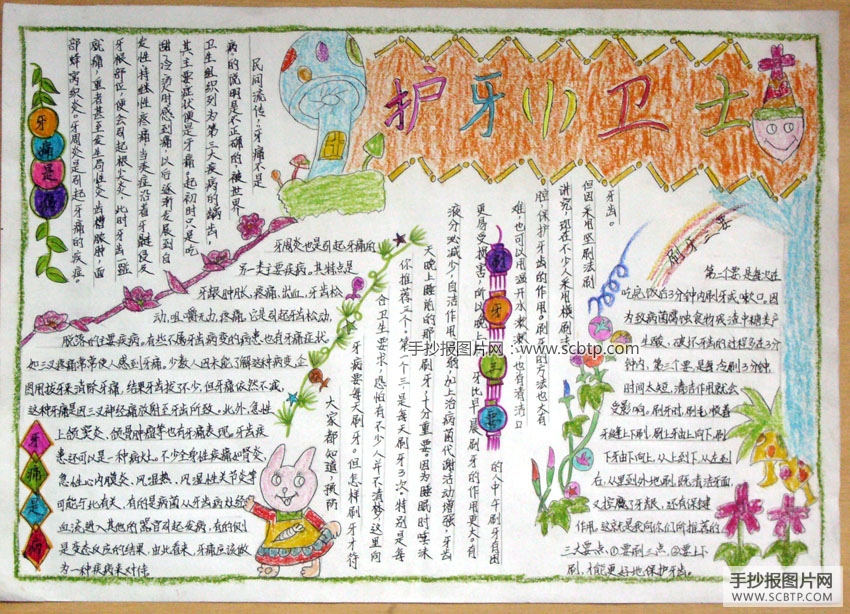 护牙小卫士
牙痛是病
民间流传，牙痛不是
病的说明是不正确的，被世界
卫生组织列为第三大疾病的龋齿，
其主要症状便是牙痛，起初时只是吃
甜、冷、烫时感到痛，以后逐渐发展到自
发性、持续性疼痛，当炎症沿着牙髓侵及
牙根部位，便会引起根尖炎，此时牙齿一碰
就痛，重者甚至发生局性炎、齿槽脓肿、面
部蜂窝织炎。牙周炎是引起牙痛的疾症。
牙周炎也是引起牙痛的
另一类主要疾病。其特点是
牙龈肿胀、疼痛、出血、牙齿松
动、咀嚼无力、疼痛，它是引起牙齿松动、
脱落的主要疾病。有些不属牙齿病变的病患，也有牙痛症状，
如三叉疼痛常常使人感到牙痛。少数人因未能了解这种病变，企
图用拔牙来消除牙痛，结果牙齿拔不少，但牙痛依然不减，
这种牙痛是因三叉神经痛放射至牙齿所致。此外，急性
上颌窦炎、颌骨肿瘤等也有牙痛表现。牙齿疾
患还可以是一种病灶。不少全身性疾病如肾炎、
急性心内膜炎、风湿热、风湿性关节炎等
可能与此有关，有的是病菌从牙齿病灶经
血流进入其他的器官引起疾病，有的则
是变态反应的结果，由此看来，牙痛应该做
为一种疾病来对待
牙痛是病
刷牙三要
大家都知道，预防
牙病要每天刷牙。但怎样刷牙才符
合卫生要求，恐怕有不少人并不清楚，这里向
你推荐三个。第一个三是每天刷牙3次，特别是每
天晚上睡前的那刷牙十分重要，因为睡眠时唾沫
液分泌减少，自洁作用
加上治病菌代谢活动增强，牙齿
更易受损害，所以晚上
牙比早晨刷牙的作用更大，有
难，也可以用温开水漱漱
也有清洁口
腔，保护牙齿的作用。刷牙的方法也大有
讲究，现在不少人采用横刷法，
的人中午刷牙有困
但因采用竖刷法刷
牙齿。
第二个要是每次在
吃完饭后3分钟内刷牙或漱口，因
为致病菌腐蚀食物残渣中糖类产
生酸，破坏牙齿的过程多在3分
钟内，第三个要是每次刷3分钟
时间太短，清洁作用就会
受影响。刷牙时，刷毛顺着
牙缝上下刷，刷上牙由上向下，刷
下牙由下向上，从上到下，从左到
右，从里到外地刷，既清洁牙面，
又按摩了牙龈，还有保健
作用，这就是我向你们所推荐的
三大要点：①要刷三点②要上下
刷，才能更好地保护牙齿。
手抄报图片网：www.scbtp.com
手抄报图片网
WWW.SCBTP.COM